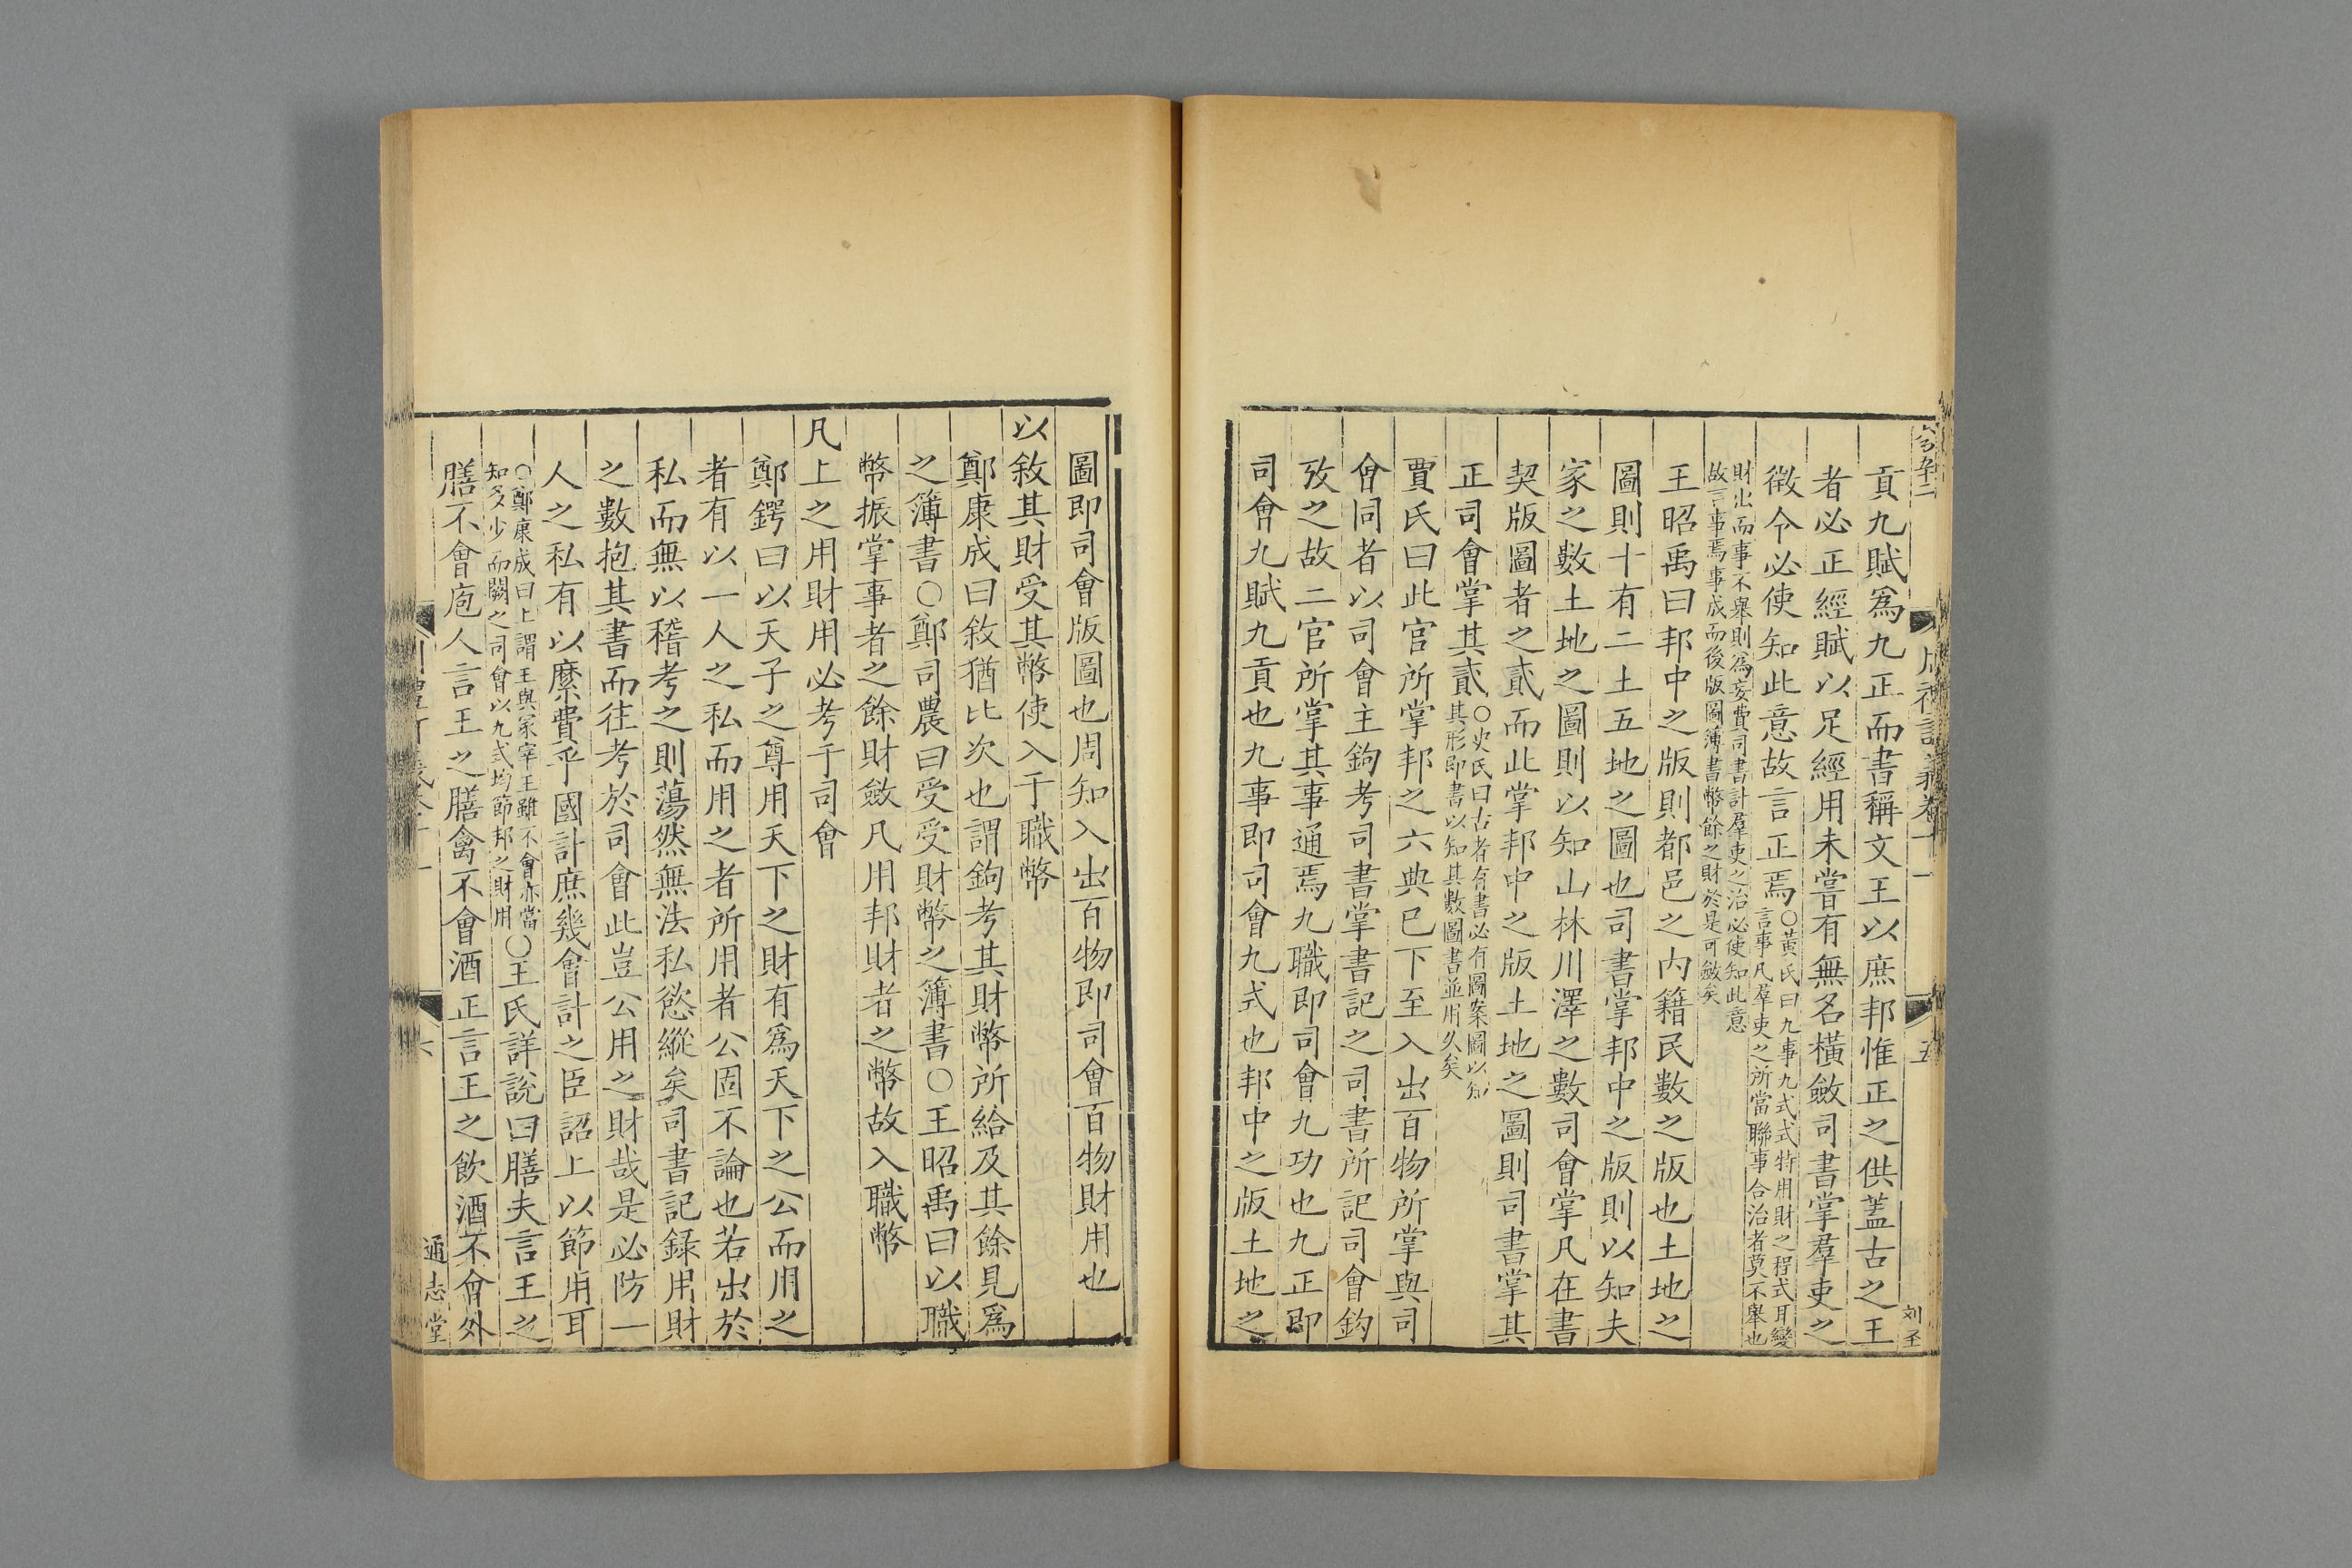 貢九賦爲九正而書稱文王以庶邦惟正之供蓋古之王
者必正經賦以足經用未嘗有無名橫斂司書掌羣吏之
徵令必使知此意故言正焉○黃氏曰九事九式式特用財之程式耳變
言事凡羣吏之所當聯事合治者莫不舉也
財出而事不舉則爲妄費司書計羣吏之治必使知此意
故言事焉事成而後版圖簿書幣餘之財於是可斂矣
王昭禹曰邦中之版則都邑之内籍民數之版也土地之
圖則十有二土五地之圖也司書掌邦中之版則以知夫
家之數土地之圖則以知山林川澤之數司會掌凡在書
契版圖者之貳而此掌邦中之版土地之圖則司書掌其
正司會掌其貳○史氏曰古者有書必有圖案圖以知
其形即書以知其數圖書並用久矣
賈氏曰此官所掌邦之六典已下至入出百物所掌與司
會同者以司會主鉤考司書掌書記之司書所記司會鈎
攷之故二官所掌其事通焉九職即司會九功也九正即
司會九賦九貢也九事即司會九式也邦中之版土地之
圖即司會版圖也周知入出百物即司會百物財用也
以敘其財受其幣使入于職幣
鄭康成曰敘猶比次也謂鉤考其財幣所給及其餘見爲
之簿書○鄭司農曰受受財幣之簿書○王昭禹曰以職
幣振掌事者之餘財斂凡用邦財者之幣故入職幣
凡上之用財用必考于司會
鄭鍔曰以天子之尊用天下之財有爲天下之公而用之
者有以一人之私而用之者所用者公固不論也若出於
私而無以稽考之則蕩然無法私慾縱矣司書記録用財
之數抱其書而往考於司會此豈公用之財哉是必防一
人之私有以縻費乎國計庶幾會計之臣詔上以節用耳
○鄭康成曰上謂王與冢宰王雖不會亦當
知多少而闕之司會以九式均節邦之財用○王氏詳說曰膳夫言王之
膳不會庖人言王之膳禽不會酒正言王之飲酒不會外
通志堂